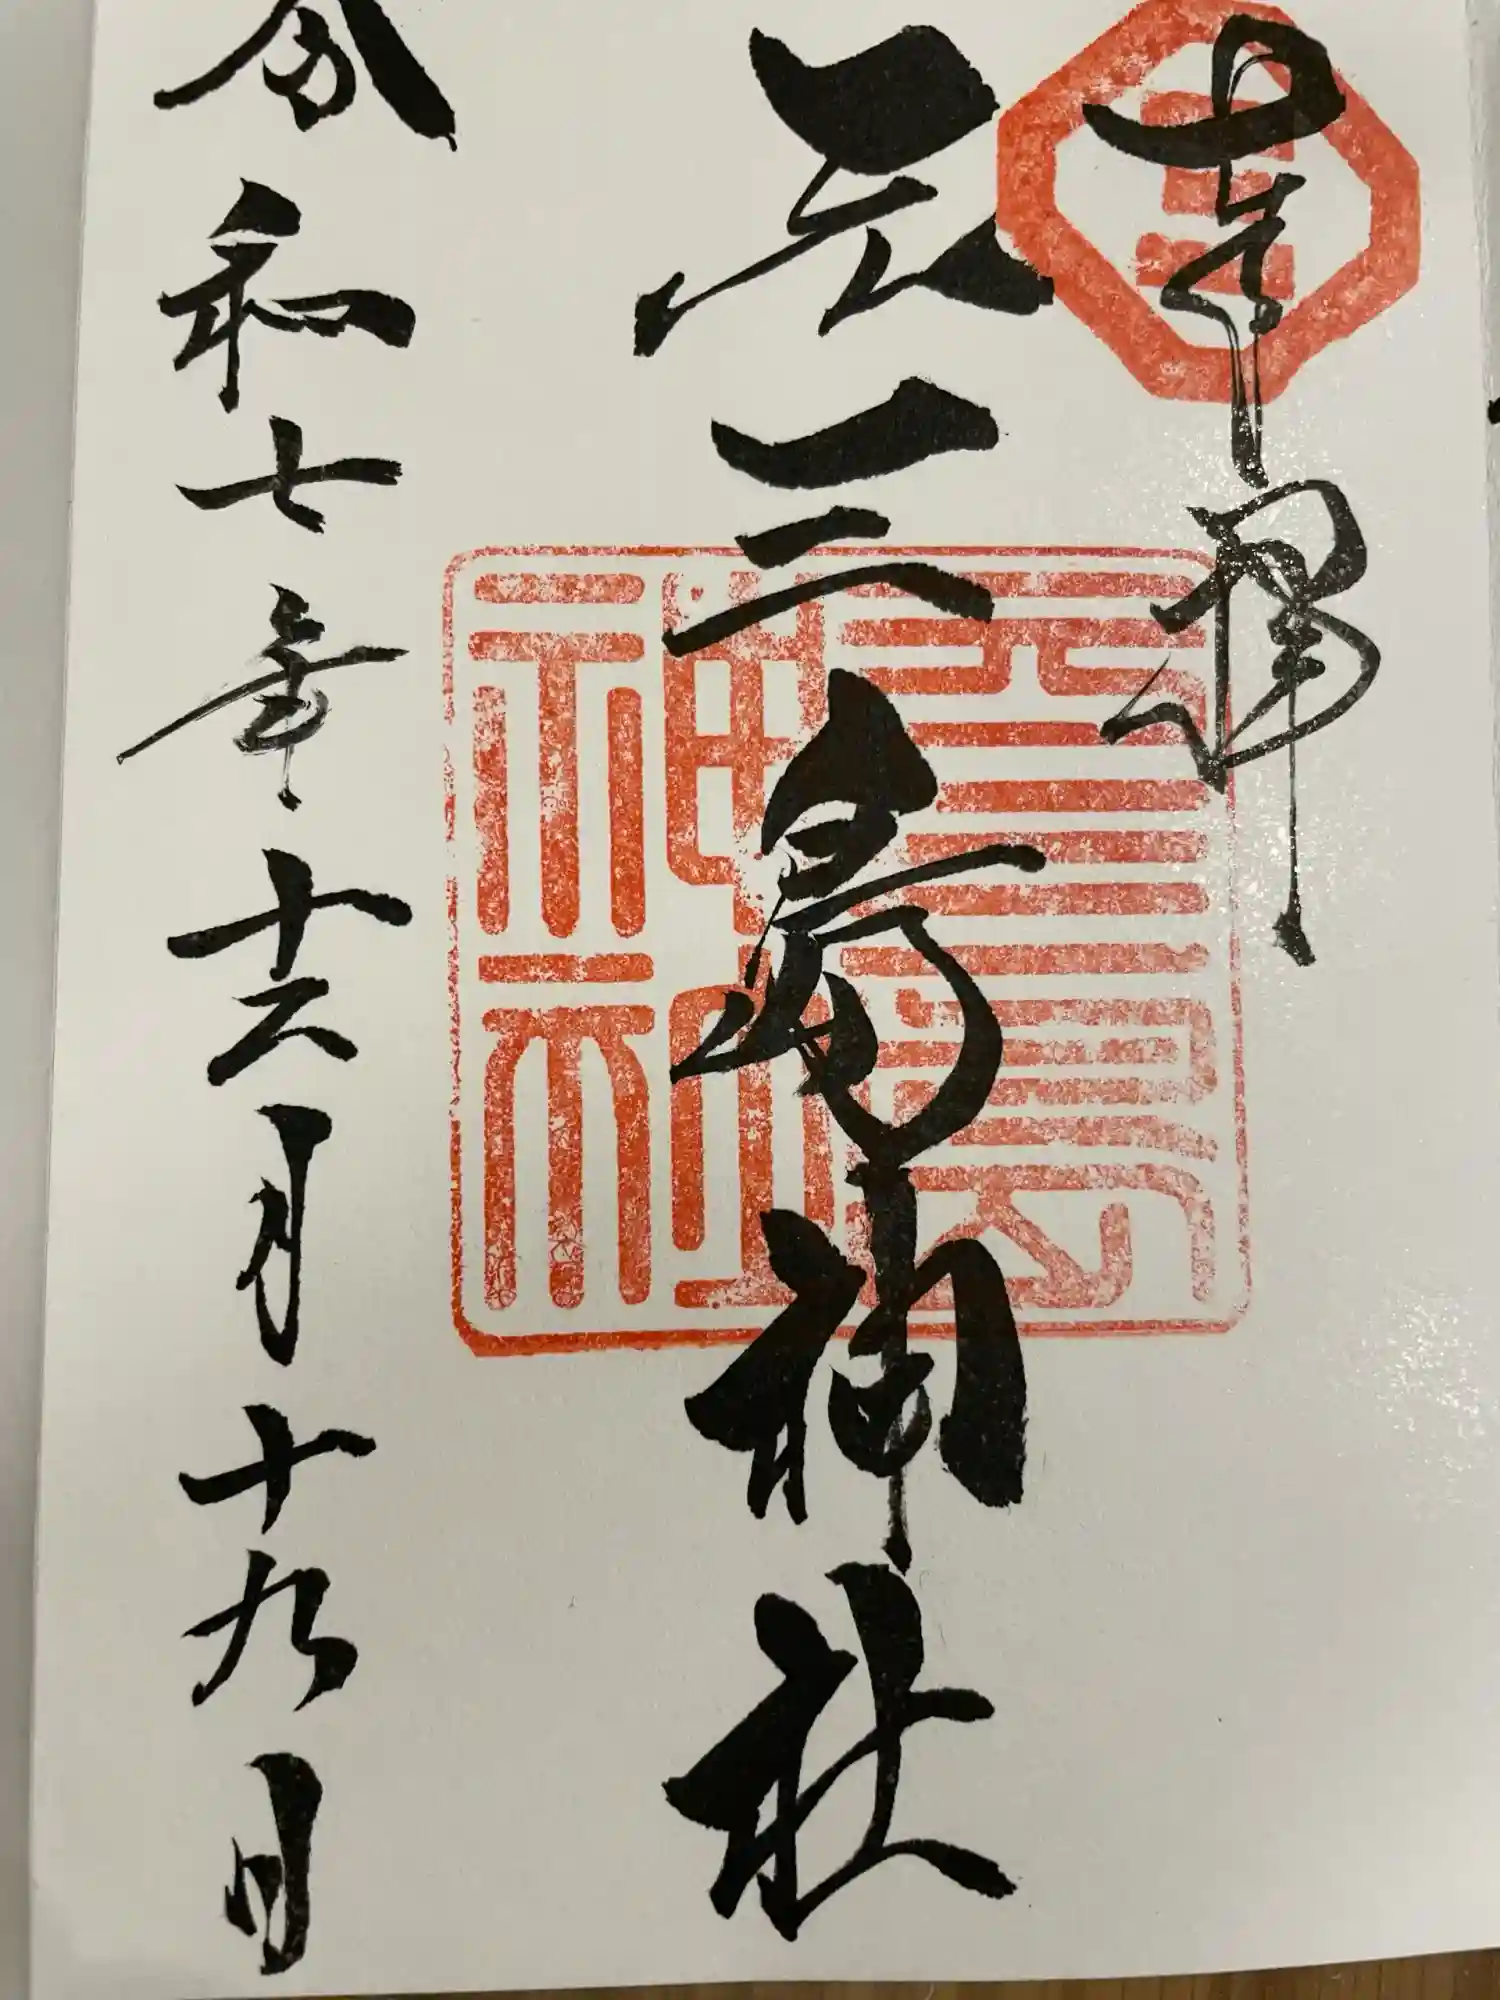 奉拝
元三島神社
令和七年十二月十九日
元三島
神社
三